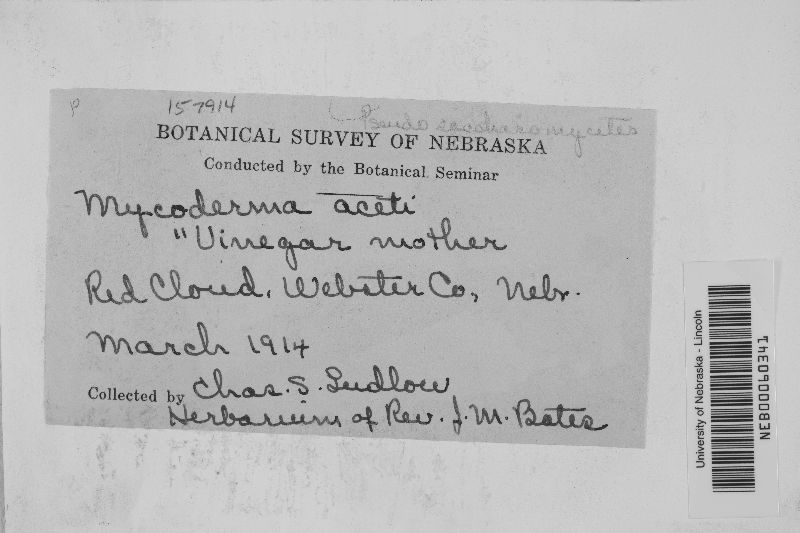 P 157914 Pseudosaccharomycetes
BOTANICAL SURVEY OF NEBRASKA
Conducted by the Botanical Seminar
Mycoderma aceti
"Vinegar mother
Red Cloud, Webster Co, Nebr.
March 1914
Collected by Chas. S. Ludlow
Herbarium of Rev. J. M. Bates
University of Nebraska - Lincoln
NEB00060341